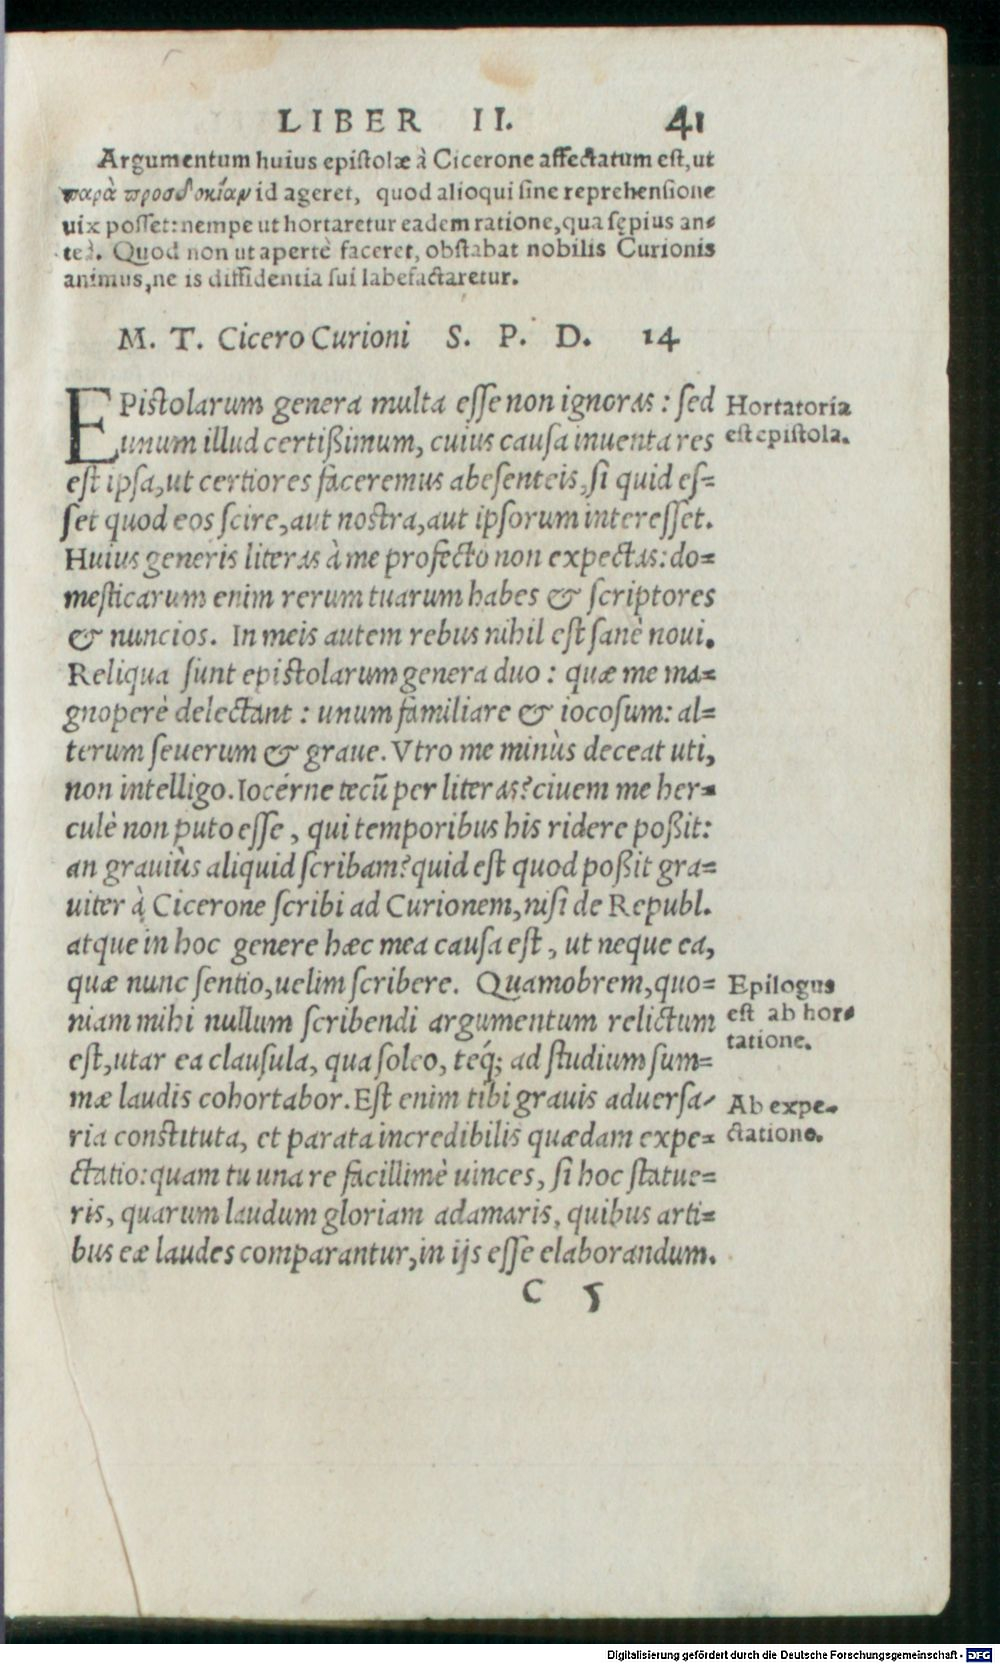 LIBER II. 41
Argumentum huius epistolæ à Cicerone affectatum est, ut
παρὰ προσδοκίαν id ageret, quod alioqui sine reprehensione
uix posset: nempe ut hortaretur eadem ratione, qua sępius an-
teà. Quod non ut apertè faceret, obstabat nobilis Curionis
animus, ne is diffidentia sui labefactaretur.
M. T. Cicero Curioni S. P. D. 14
EPistolarum genera multa esse non ignoras: sed
unum illud certißimum, cuius causa inuenta res
est ipsa, ut certiores faceremus abesenteis, si quid es-
set quod eos scire, aut nostra, aut ipsorum interesset.
Huius generis literas à me profecto non expectas: do-
mesticarum enim rerum tuarum habes & scriptores
& nuncios. In meis autem rebus nihil est sanè noui.
Reliqua sunt epistolarum genera duo: quæ me ma-
gnoperè delectant: unum familiare & iocosum: al-
terum seuerum & graue. Vtro me minùs deceat uti,
non intelligo. Iocérne tecū per literas? ciuem me her-
culè non puto esse, qui temporibus his ridere poßit:
an grauiùs aliquid scribam? quid est quod poßit gra-
uiter à Cicerone scribi ad Curionem, nisi de Republ.
atque in hoc genere hæc mea causa est, ut neque ea,
quæ nunc sentio, uelim scribere. Quamobrem, quo-
niam mihi nullum scribendi argumentum relictum
est, utar ea clausula, qua soleo, teq́; ad studium sum-
mæ laudis cohortabor. Est enim tibi grauis aduersa-
ria constituta, et parata incredibilis quædam expe-
ctatio: quam tu una re facillimè uinces, si hoc statue-
ris, quarum laudum gloriam adamaris, quibus arti-
bus eæ laudes comparantur, in ijs esse elaborandum.
C 5
Hortatoria
est epistola.
Epilogus
est ab hor-
tatione.
Ab expe-
ctatione.
Digitalisierung gefördert durch die Deutsche Forschungsgemeinschaft - DFG